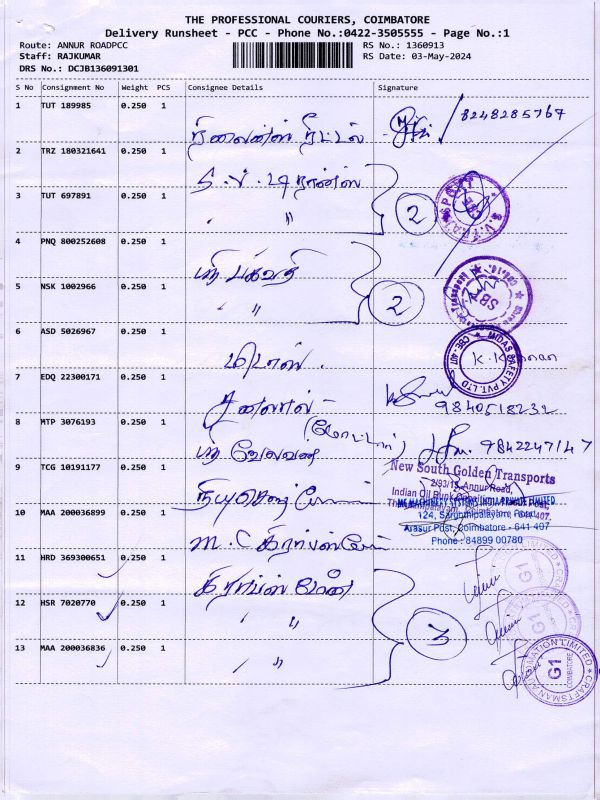 THE PROFESSIONAL COURIERS, COIMBATORE
Delivery Runsheet - PCC - Phone No.:0422-3505555 - Page No.:1
Route: ANNUR ROADPCC
RS No.: 1360913
Staff: RAJKUMAR
RS Date: 03-May-2024
DRS No.: DCJB136091301
S No Consignment No Weight PCS Consignee Details Signature
1 TUT 189985 0.250 1 8248285767
2 TRZ 180321641 0.250 1 S.V. டிரான்ஸ்
3 TUT 697891 0.250 1 " 2
4 PNQ 800252608 0.250 1 ஸ்ரீ பகவதி
5 NSK 1002966 0.250 1 " 2
6 ASD 5026967 0.250 1 மிடாஸ். MIDAS SAFETY PVT. LTD CBE - 407
7 EDQ 22300171 0.250 1 9840518232
8 MTP 3076193 0.250 1 ஸ்ரீ வேலவன் (மோட்டார்) 9842247147
9 TCG 10191177 0.250 1
New South Golden Transports
2/93/15, Annur Road,
10 MAA 200036899 0.250 1 M.C
Arasur Post, Coimbatore - 641 407
Phone : 84899 00780
11 HRD 369300651 0.250 1
12 HSR 7020770 0.250 1 " 3
13 MAA 200036836 0.250 1 "
CRAFTSMAN AUTOMATION LIMITED G1 COIMBATORE